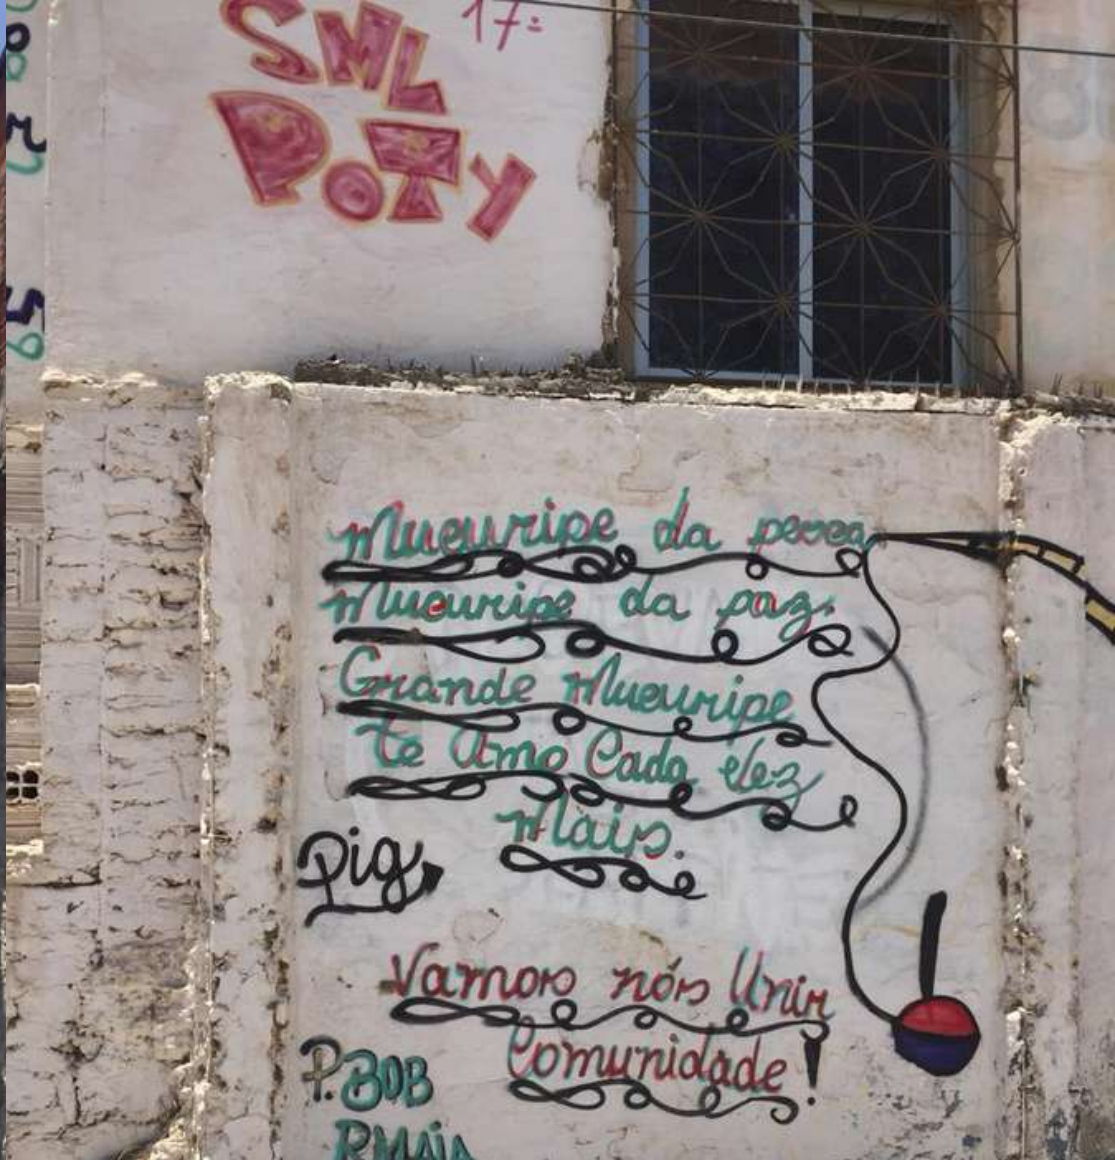 17=
SML
POTY
Mucuripe da pesca,
Mucuripe da paz.
Grande Mucuripe
te Amo Cada Vez
Mais.
Pig
Vamos nós Unir
Comunidade!
P.BOB
RMAIA